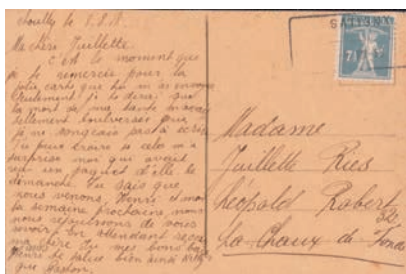 Chouilly le 1.8.18.
Ma chère Juillette.
C'est le moment que
je te remercie pour la
jolie carte que tu m'as envoyée
Seulement je te dirai que
la mort de ma tante m'a
tellement boulversée que
je ne songeais pas à écrire
Tu peux croire si cela m'a
surprise moi qui avait
reçu son paquet d'elle le
dimanche. Tu sais que
nous venons, Henri et moi
la semaine prochaine, nous
nous réjouirons de vous
revoir. En attendant
de mes bons
bien ainsi
que Gaston.
SATIGNY
7½
Madame
Juillette Ries
Léopold Robert
32
La Chaux de Fonds